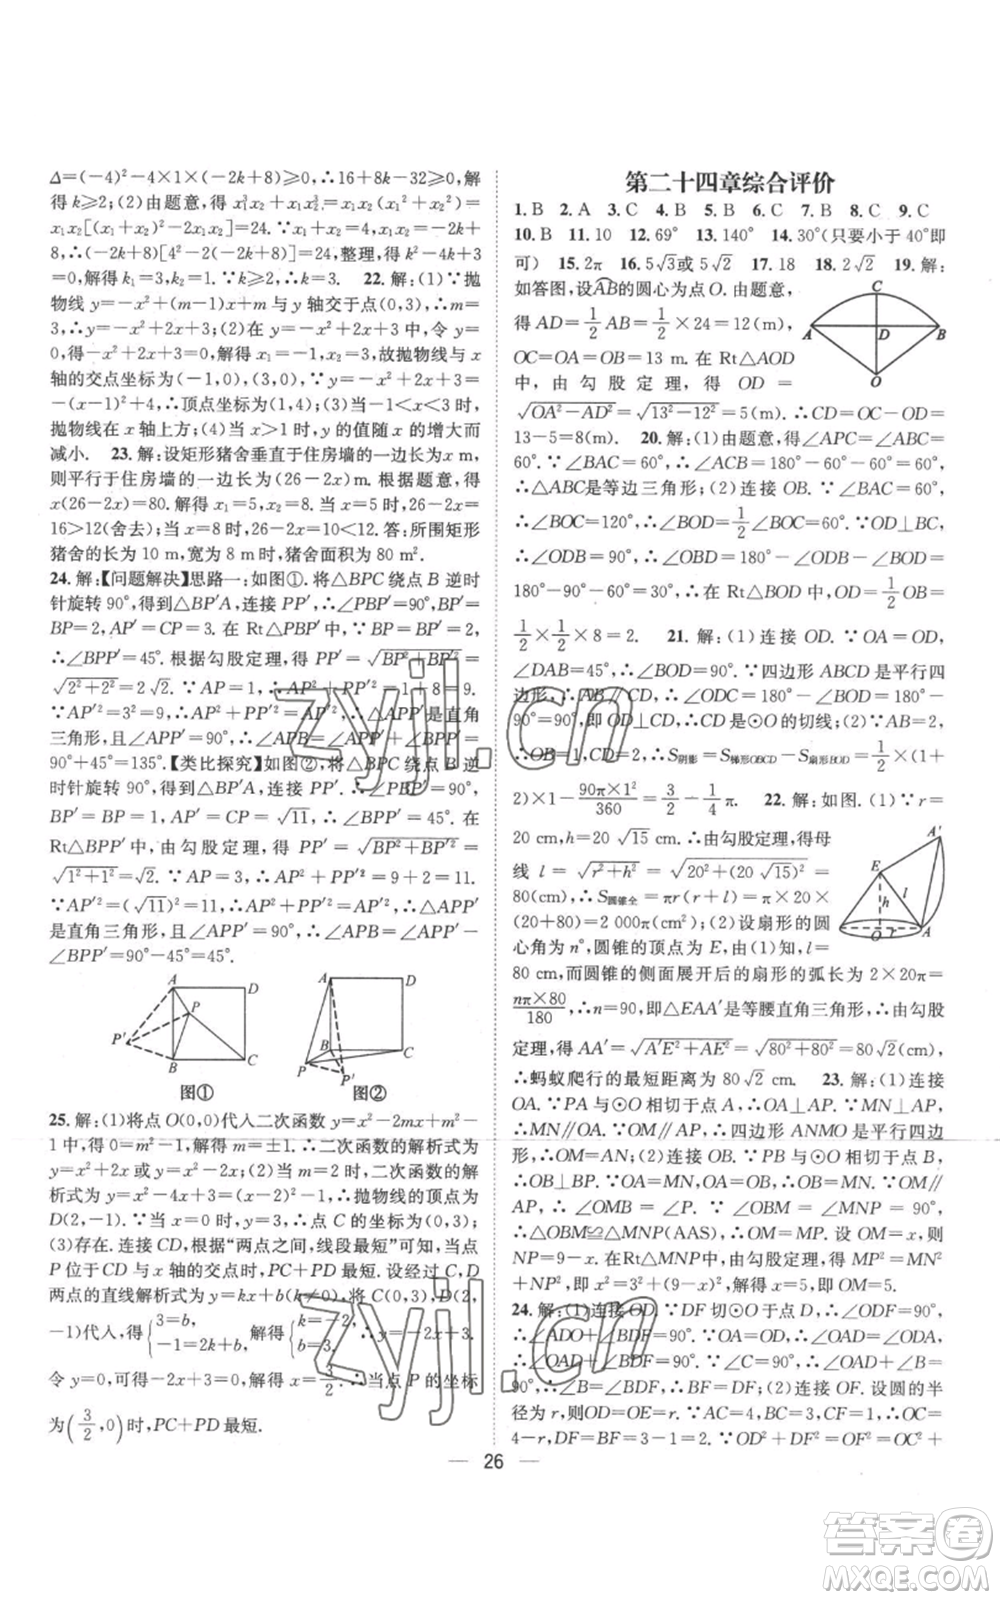 Δ=(-4)²-4×1×(-2k+8)≥0,∴16+8k-32≥0,
解得 k≥2;(2)由题意,得 x₁³x₂+x₁x₂³=x₁x₂(x₁²+x₂²)=
x₁x₂[(x₁+x₂)²-2x₁x₂]=24.∵x₁+x₂=4,x₁x₂=-2k+8,
∴(-2k+8)[4²-2(-2k+8)]=24,整理,得 k²-4k+3
=0,解得 k₁=3,k₂=1.∵k≥2,∴k=3. 22.解:(1)∵抛
物线 y=-x²+(m-1)x+m 与 y 轴交于点(0,3),∴m=
3;(2)在 y=-x²+2x+3 中,令 y=0,得 -x²+2x+3=
0,解得 x₁=-1,x₂=3.故抛物线与 x
轴的交点坐标为(-1,0),(3,0).∵y=-x²+2x+3=
-(x-1)²+4,∴顶点坐标为(1,4);(3)当-1<x<3时,
抛物线在 x 轴上方;(4)当 x>1 时,y 的值随 x 的增大而
减小. 23.解:设矩形猪舍垂直于住房墙的一边长为 x m,
则平行于住房墙的一边长为(26-2x)m.根据题意,得
x(26-2x)=80.解得 x₁=5,x₂=8.当 x=5 时,26-2x=
16>12(舍去);当 x=8时,26-2x=10<12.答:所围矩形
猪舍的长为 10 m,宽为 8 m时,猪舍面积为 80 m².
24.解:【问题解决】思路一:如图①.将△BPC绕点 B 逆时
针旋转 90°,得到△BP′A,连接 PP′,∴∠PBP′=90°,BP′=
BP=2,AP′=CP=3.在 Rt△PBP′中,∵BP=BP′=2,
∴∠BPP′=45°.根据勾股定理,得 PP′=√(BP²+BP′²)=
√(2²+2²)=2√2.∵AP=1,∴AP²+PP′²=1+8=9.
∵AP′²=3²=9,∴AP²+PP′²=AP′².∴△APP′是直角
三角形,且∠APP′=90°,∴∠APB=∠APP′+∠BPP′=
90°+45°=135°.【类比探究】如图②,将△BPC 绕点 B 逆
时针旋转 90°,得到△BP′A,连接 PP′,∴∠PBP′=90°,
BP′=BP=1,AP′=CP=√11,∴∠BPP′=45°.在
Rt△BPP′中,根据勾股定理,得 PP′=√(BP²+BP′²)=
√(1²+1²)=√2.∵AP=3,∴AP²+PP′²=9+2=11.
∵AP′²=(√11)²=11,∴AP²+PP′²=AP′².∴△APP′
是直角三角形,且∠APP′=90°,∴∠APB=∠APP′
-∠BPP′=90°-45°=45°.
A D P P′ B C
图①
A D B C P P′
图②
25.解:(1)将点 O(0,0)代入二次函数 y=x²-2mx+m²-
1 中,得 0=m²-1,解得 m=±1.∴二次函数的解析式为
y=x²+2x 或 y=x²-2x;(2)当 m=2 时,二次函数的解
析式为 y=x²-4x+3=(x-2)²-1,∴抛物线的顶点为
D(2,-1);当 x=0 时,y=3,∴点 C 的坐标为(0,3);
(3)存在.连接 CD,根据“两点之间,线段最短”可知,当点
P 位于 CD 与 x 轴的交点时,PC+PD 最短.设经过 C,D
两点的直线解析式为 y=kx+b(k≠0),将 C(0,3),D(2,
-1)代入,得{3=b, -1=2k+b,解得{k=-2, b=3.∴y=-2x+3.
令 y=0,可得-2x+3=0,解得 x=3/2.∴当点 P 的坐标
为(3/2,0)时,PC+PD 最短.
第二十四章综合评价
1.B 2.A 3.C 4.B 5.B 6.C 7.B 8.C 9.C
10.B 11.10 12.69° 13.140° 14.30°(只要小于40°即
可) 15.2π 16.5√3或5√2 17.18 18.2√2 19.解:
如答图,设AB的圆心为点 O.由题意,
得 AD=1/2 AB=1/2×24=12(m),
OC=OA=OB=13 m.在 Rt△AOD
中,由勾股定理,得 OD=
√(OA²-AD²)=√(13²-12²)=5(m).∴CD=OC-OD=
13-5=8(m). 20.解:(1)由题意,得∠APC=∠ABC=
60°.∵∠BAC=60°,∴∠ACB=180°-60°-60°=60°,
∴△ABC是等边三角形;(2)连接 OB.∵∠BAC=60°,
∴∠BOC=120°,∴∠BOD=1/2∠BOC=60°.∵OD⊥BC,
∴∠ODB=90°,∴∠OBD=180°-∠BOD-∠ODB=
180°-90°-60°=30°.∴在 Rt△BOD 中,OD=1/2OB=
1/2×1/2×8=2. 21.解:(1)连接 OD.∵OA=OD,
∠DAB=45°,∴∠BOD=90°.∵四边形 ABCD 是平行四
边形,∴AB∥CD,∴∠ODC=180°-∠BOD=180°-
90°=90°,即 OD⊥CD,∴CD是⊙O的切线;(2)∵AB=2,
∴OB=1,CD=2.∴S阴影=S梯形OBCD-S扇形BOD=1/2×(1+
2)×1-90π×1²/360=3/2-1/4π. 22.解:如图.(1)∵r=
20 cm,h=20√15 cm.∴由勾股定理,得母
线 l=√(r²+h²)=√(20²+(20√15)²)=
80(cm),∴S圆锥全=πr(r+l)=20π×
(20+80)=2 000π(cm²);(2)设扇形的圆
心角为 n°,圆锥的顶点为 E,由(1)知,l=
80 cm,而圆锥的侧面展开后的扇形的弧长为 2×20π=
nπ×80/180,∴n=90,即△EAA′是等腰直角三角形,∴由勾股
定理,得 AA′=√(A′E²+AE²)=√(80²+80²)=80√2(cm),
∴蚂蚁爬行的最短距离为 80√2 cm. 23.解:(1)连接
OA.∵PA与⊙O相切于点A,∴OA⊥AP.∵MN⊥AP,
∴MN∥OA.∵OM∥AP,∴四边形 ANMO 是平行四边
形,∴OM=AN;(2)连接 OB.∵PB 与⊙O 相切于点 B,
∴OB⊥BP.∵OA=MN,OA=OB,∴OB=MN.∵OM∥
AP,∴∠OMB=∠P.∵∠OBM=∠MNP=90°,
∴△OBM≌△MNP(AAS),∴OM=MP.设 OM=x,则
NP=9-x.在Rt△MNP中,由勾股定理,得 MP²=MN²
+NP²,即 x²=3²+(9-x)²,解得 x=5,即 OM=5.
24.解:(1)连接OD.∵DF切⊙O于点D,∴∠ODF=90°,
∴∠ADO+∠BDF=90°.∵OA=OD,∴∠OAD=∠ADO,
∴∠OAD+∠BDF=90°.∵∠C=90°,∴∠OAD+∠B=
90°,∴∠B=∠BDF,∴BF=DF;(2)连接 OF.设圆的半
径为r,则OD=OE=r.∵AC=4,BC=3,CF=1,∴OC=
4-r,DF=BF=3-1=2.∵OD²+DF²=OF²=OC²+
A B C D O
E A′ A O h l r
26
zyjl.cn
zyjl.cn
答案卷
MXQE.COM